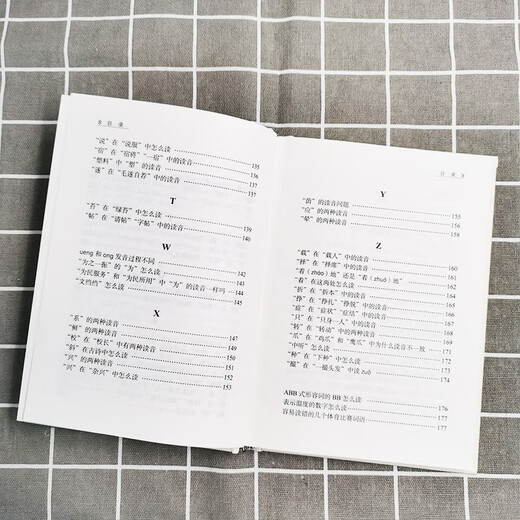 8 目 录
“说”在“说服”中怎么读 135
“宿”在“宿将”“一宿”中的读音 135
“塑料”中“塑”的读音 136
“遂”在“毛遂自荐”中的读音 137
T
“苔”在“绿苔”中怎么读 139
“帖”在“请帖”“字帖”中的读音 140
W
ueng 和 ong 发音过程不同 142
“为之一振”的“为”怎么读 144
“为民服务”和“为民所用”中“为”的读音一样吗 145
“文绉绉”怎么读 145
X
“系”的两种读音 147
“鲜”的两种读音 149
“校”在“校长”中有两种读音 150
“斜”在古诗中怎么读 151
“兴”的两种读音 152
“兴”在“杂兴”中怎么读 153
目 录 9
Y
“荫”的读音问题 155
“应”的两种读音 156
“晕”的两种读音 158
Z
“载”在“载人”中的读音 160
“择”在“择席”中的读音 161
“着（zháo）地”还是“着（zhuó）地”
“着”在这两处怎么读
“折”在“折本”中的读音
“挣”在“挣扎”“挣脱”中的读音
“症”在“症状”“症结”中的读音
“只”在“只身一人”中的读音
“转”在“转动”中的两种读音
“爪”在“鸡爪”和“鹰爪”中为什么读音不一致
“中听”怎么读 171
“种”在“下种”中怎么读 172
“撮”在“一撮头发”中读 zuǒ 174
ABB 式形容词的 BB 怎么读 176
表示温度的数字怎么读 177
容易读错的几个体育比赛词语 177